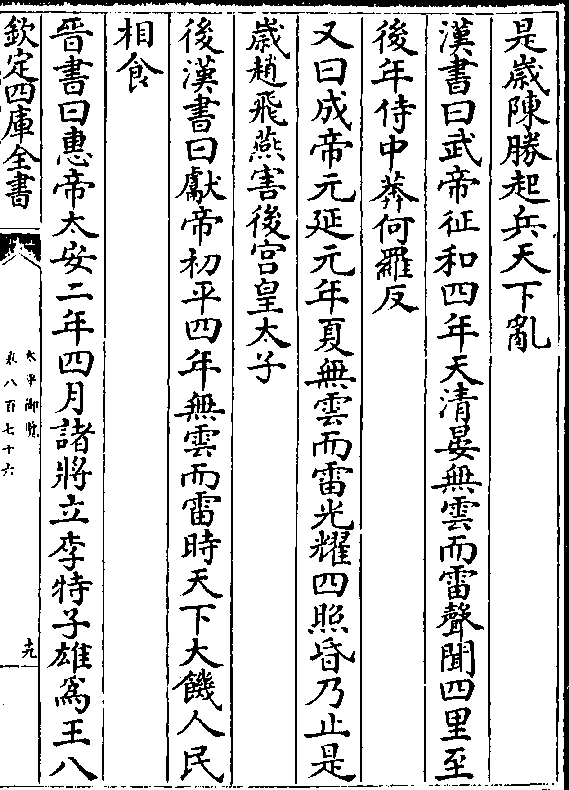 是歲陳勝起兵天下亂
漢書曰武帝征和四年天清晏無雲而雷聲聞四里至
後年侍中莽何羅反
又曰成帝元延元年夏無雲而雷光耀四照昏乃止是
歲趙飛燕害後宫皇太子
後漢書曰獻帝初平四年無雲而雷時天下大饑人民
相食
晉書曰惠帝太安二年四月諸將立李特子雄爲王八
欽定四庫全書
太平御覽
卷八百七十六